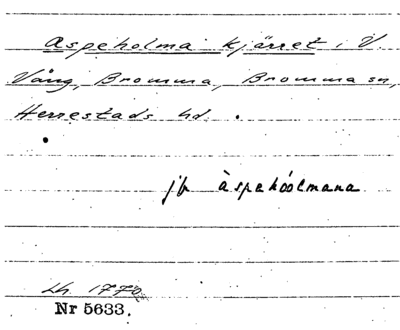 Aspeholma kjärret i V.
Vång, Bromma, Bromma sn,
Herrestads hd.
jfr àspehóolmana
Lh. 1770.
Nr 5633.